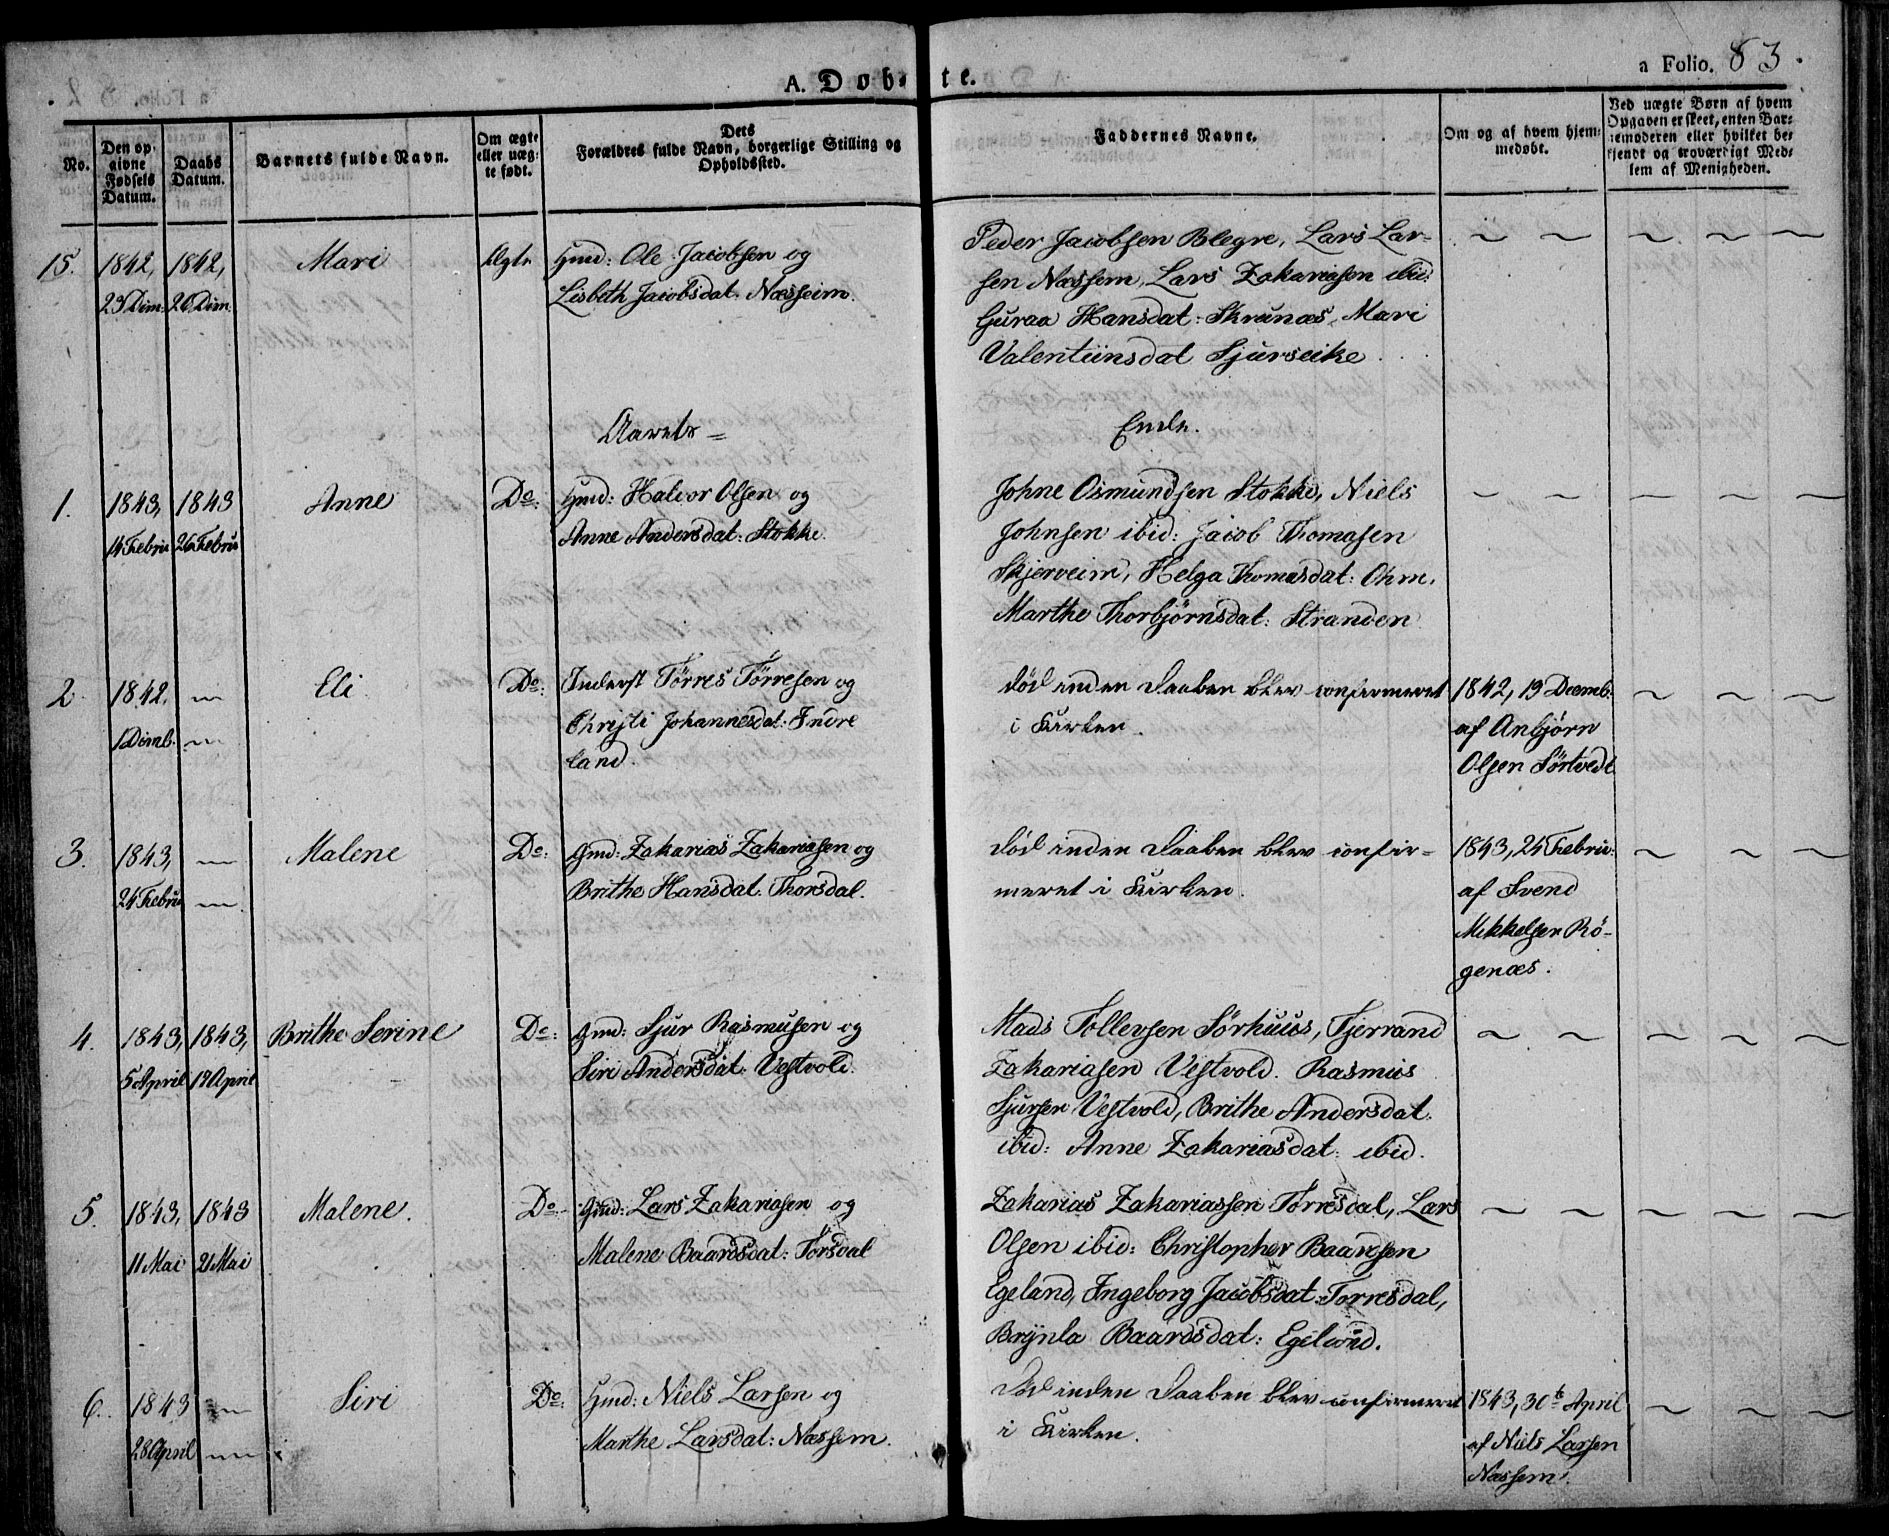 a Folio. 83.
A. Døbte.
No.
Den opgivne Fødsels Datum.
Daabs Datum.
Barnets fulde Navn.
Om ægte eller uægte født.
Dets Forældres fulde Navn, borgerlige Stilling og Opholdssted.
Faddernes Navne.
Om og af hvem hjemmedøbt.
Ved uægte Børn af hvem Opgaven er skeet, enten Barnemoderen eller hvilket bekjendt og troværdigt Medlem af Menigheden.
15.
1842,
23 Dcm:
1842,
26 Dcm:
Mari
Ægte
Gmd: Ole Jacobsen og
Lisbeth Jacobsdat. Næsheim.
Peder Jacobsen Blegre, Lars Lar-
sen Næshem, Lars Zakariasen ibid:
Guraa Hansdat: Skrunæs, Mari
Valentiinsdat Sjurseike
Aarets = Ende.
1.
1843,
14 Febru
1843
26 Febru
Anne
Do:
Gmd: Halvor Olsen og
Anne Andersdat: Stokke
Johne Osmundsen Stokke, Niels
Johnsen ibid: Jacob Thomasen
Skjerveim, Helga Thomasdat: Ohm.
Marthe Thorbjørnsdat: Stranden
2.
1842.
1 Dcmb.
Eli
Do:
Inderst Tørres Tørresen og
Christi Johannesdat. Indre
land.
død inden Daaben blev confirmeret
i Kirken.
1842, 19 Decmb.
af Anbjørn
Olsen Sørtvedt
3.
1843,
24 Febru
Malene
Do:
Gmd: Zakarias Zakariasen og
Brithe Hansdat. Thorsdal.
død inden Daaben blev confir-
meret i Kirken.
1843, 24 Febru:
af Svend
Mikkelsen Rö-
genæs.
4.
1843,
5 April
1843,
17 April
Brithe Serine
Do:
Gmd: Sjur Rasmusen og
Siri Andersdat. Vestvold.
Mads Tollevsen Sørhuus, Tjerrand
Zakariasen Vestvold. Rasmus
Sjursen Vestvold, Brithe Andersdat.
ibid: Anne Zakariasdat: ibid.
5.
1843,
11 Mai
1843
21 Mai
Malene.
Do:
Gmd: Lars Zakariasen og
Malene Baardsdat: Torsdal
Zakarias Zakariassen Torresdal, Lars
Olsen ibid: Christopher Baardsen
Egeland, Ingeborg Jacobsdat: Torresdal,
Brynla Baardsdat: Egeland.
6.
1843
28 April
Siri
Do:
Gmd: Niels Larsen og
Marthe Larsdat: Næshem.
Død inden Daaben blev confirmeret
i Kirken.
1843, 30te April
af Niels Larsen
Næshem.